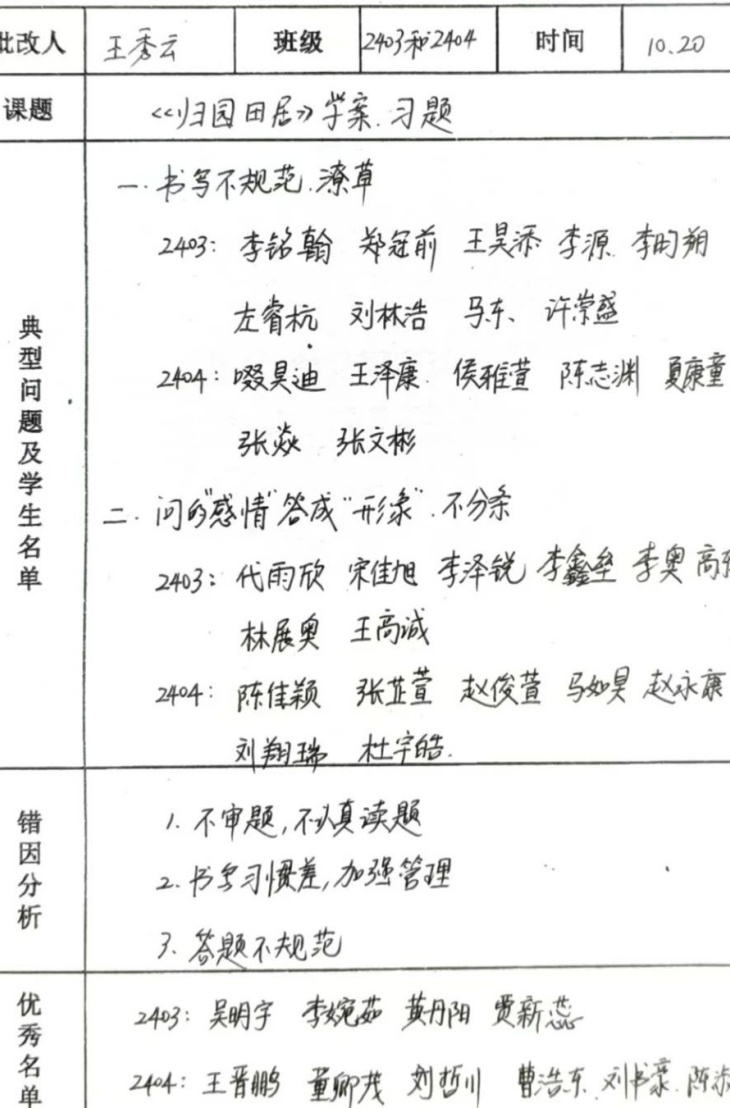 批改人 王秀云 班级 2403和2404 时间 10.20
课题 《归园田居》学案.习题
典型问题及学生名单
一.书写不规范.潦草
2403: 李铭翰 郑冠前 王昊添 李源 李昀朔
左睿杭 刘林浩 马东、 许崇盛
2404: 啜昊迪 王泽康 侯雅萱 陈志渊 夏康童
张焱 张文彬
二.问的"感情"答成"形象".不分条
2403: 代雨欣 宋佳旭 李泽锐 李鑫垒 李奥 高
林展奥 王高诚
2404: 陈佳颖 张芷萱 赵俊萱 马如昊 赵永康
刘翔瑞 杜宇皓.
错因分析
1. 不审题,不认真读题
2. 书写习惯差,加强管理
3. 答题不规范
优秀名单
2403: 吴明宇 李婉茹 黄丹阳 贾新蕊
2404: 王晋鹏 童卿茂 刘哲川 曹浩东 刘书豪 陈